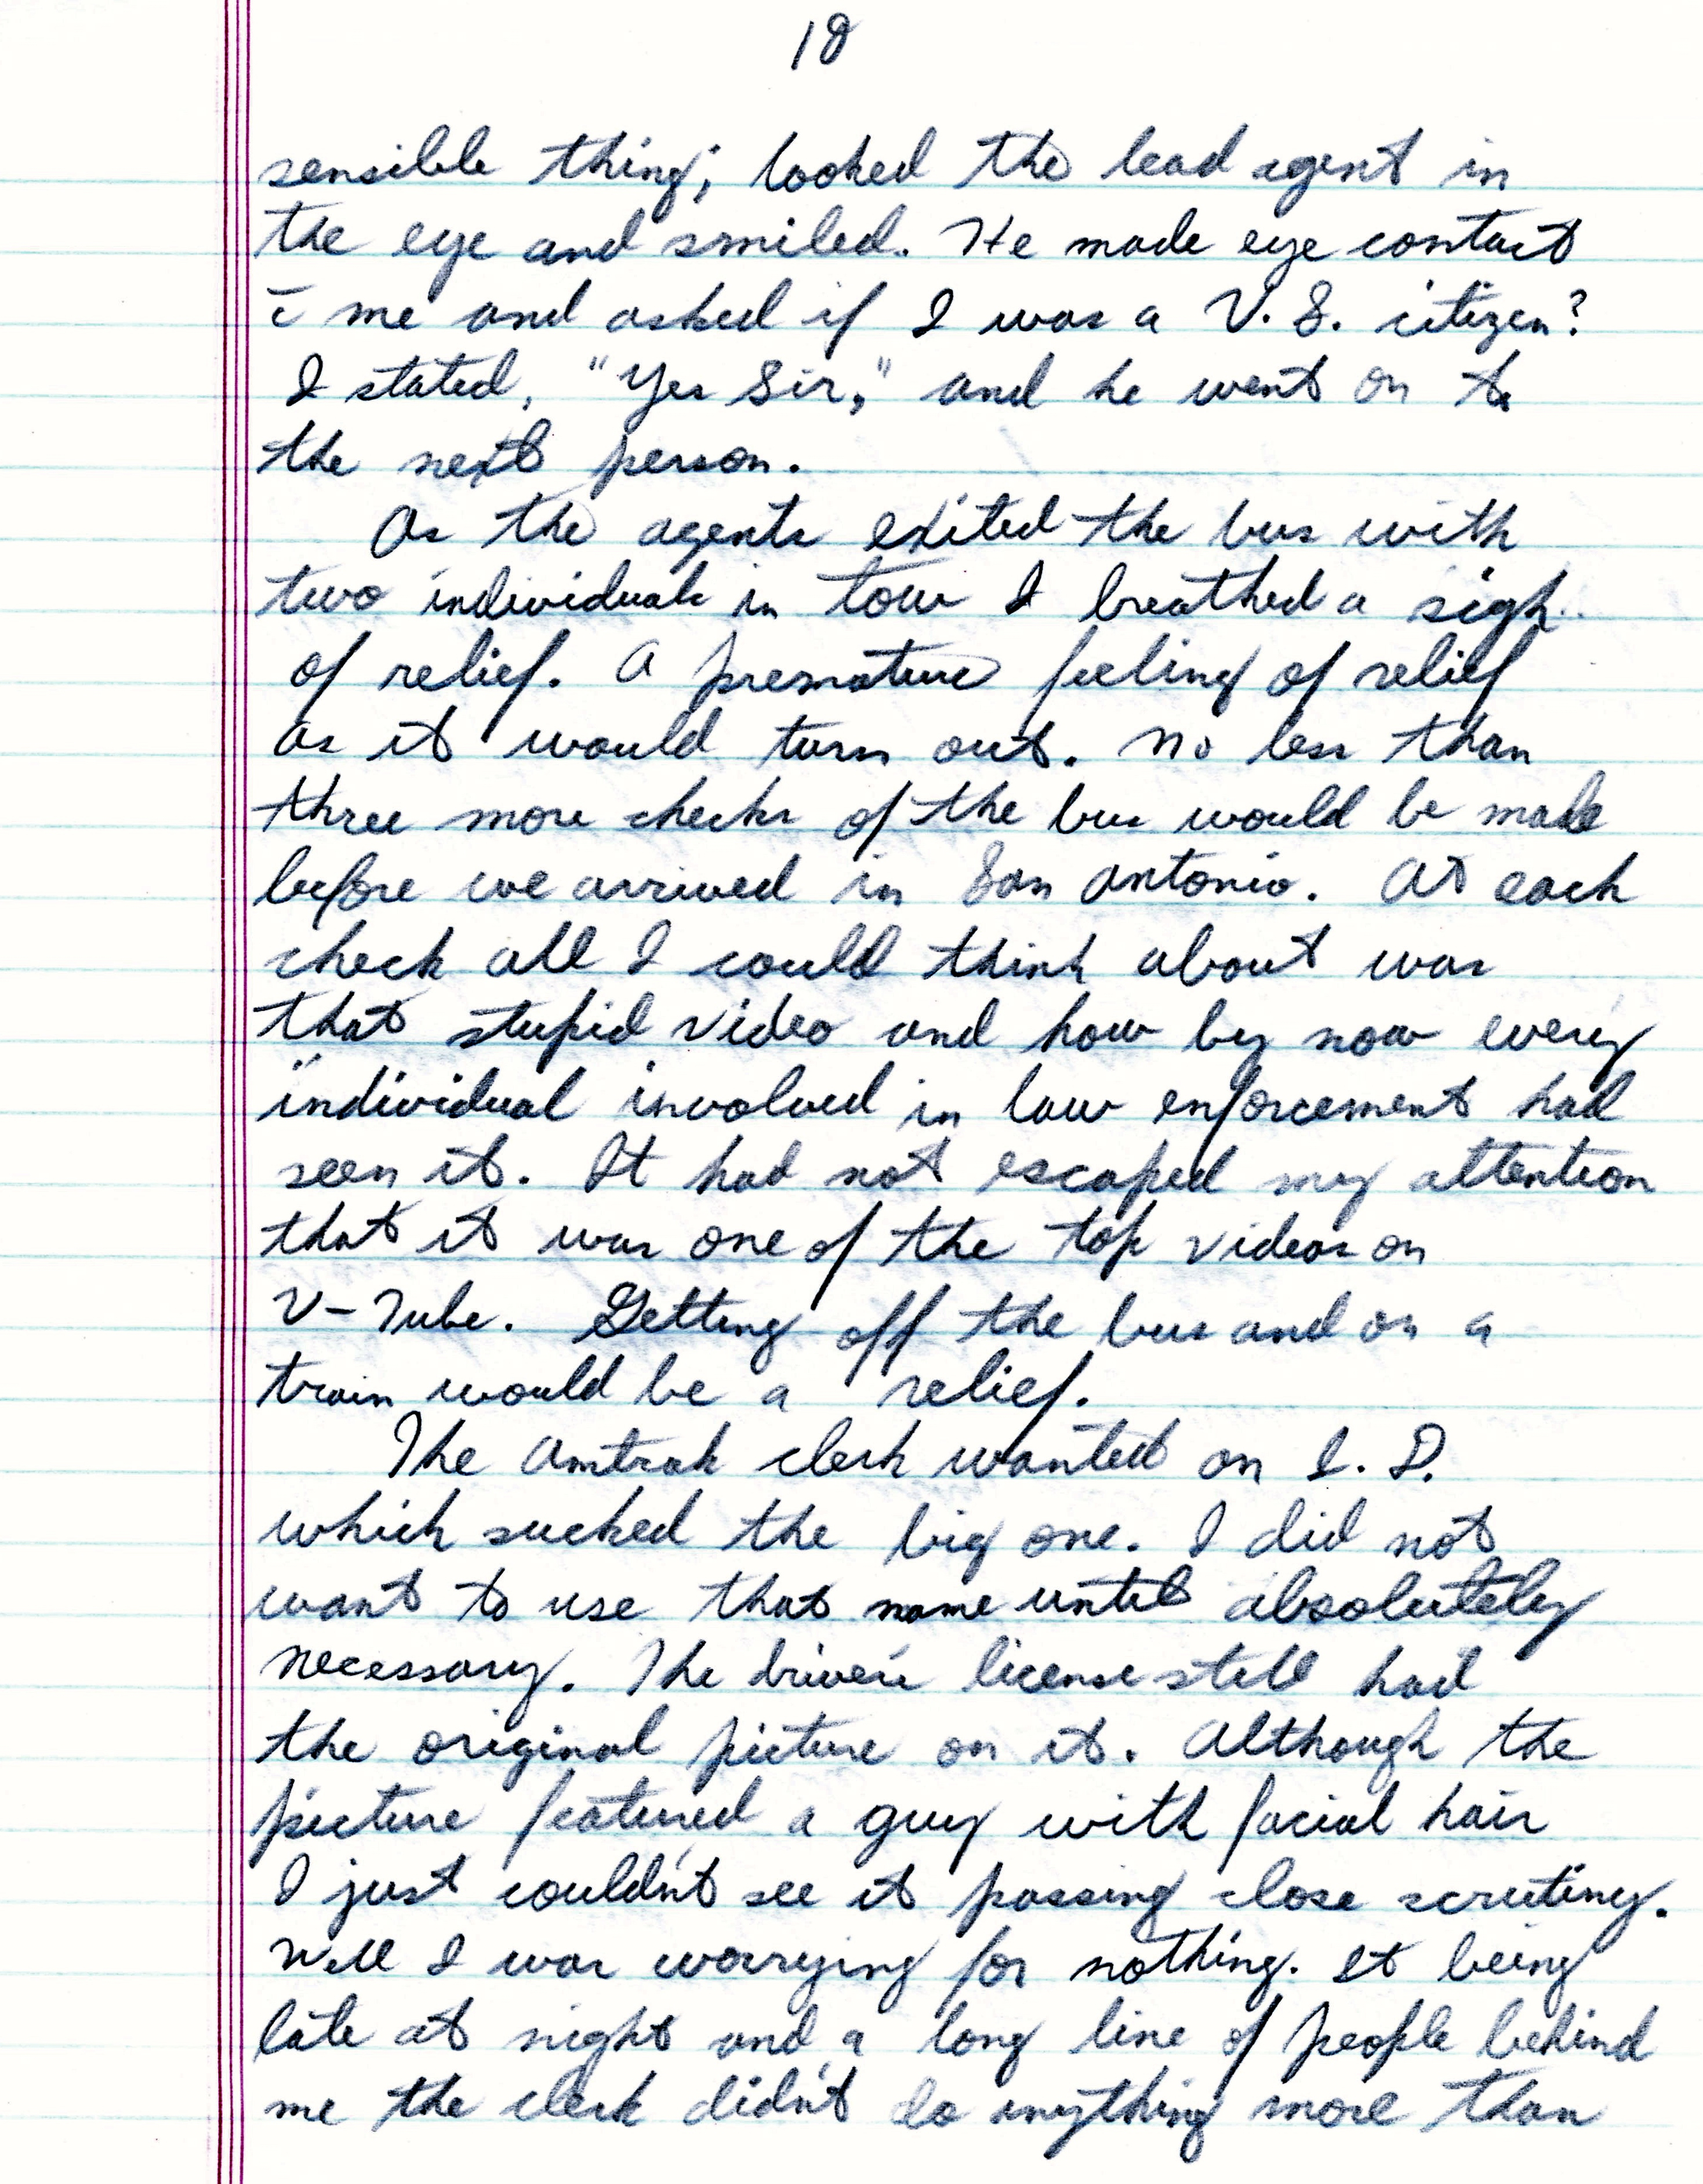 18
sensible thing; looked the lead agent in
the eye and smiled. He made eye contact
c̄ me and asked if I was a U. S. citizen?
I stated, "Yes Sir," and he went on to
the next person.
As the agents exited the bus with
two individuals in tow I breathed a sigh
of relief. A premature feeling of relief
as it would turn out. No less than
three more checks of the bus would be made
before we arrived in San Antonio. At each
check all I could think about was
that stupid video and how by now every
individual involved in law enforcement had
seen it. It had not escaped my attention
that it was one of the top videos on
V-Tube. Getting off the bus and on a
train would be a relief.
The Amtrak clerk wanted an I. D.
which sucked the big one. I did not
want to use that name until absolutely
necessary. The driver's license still had
the original picture on it. Although the
picture featured a guy with facial hair
I just couldn't see it passing close scrutiny.
Well I was worrying for nothing. It being
late at night and a long line of people behind
me the clerk didn't do anything more than